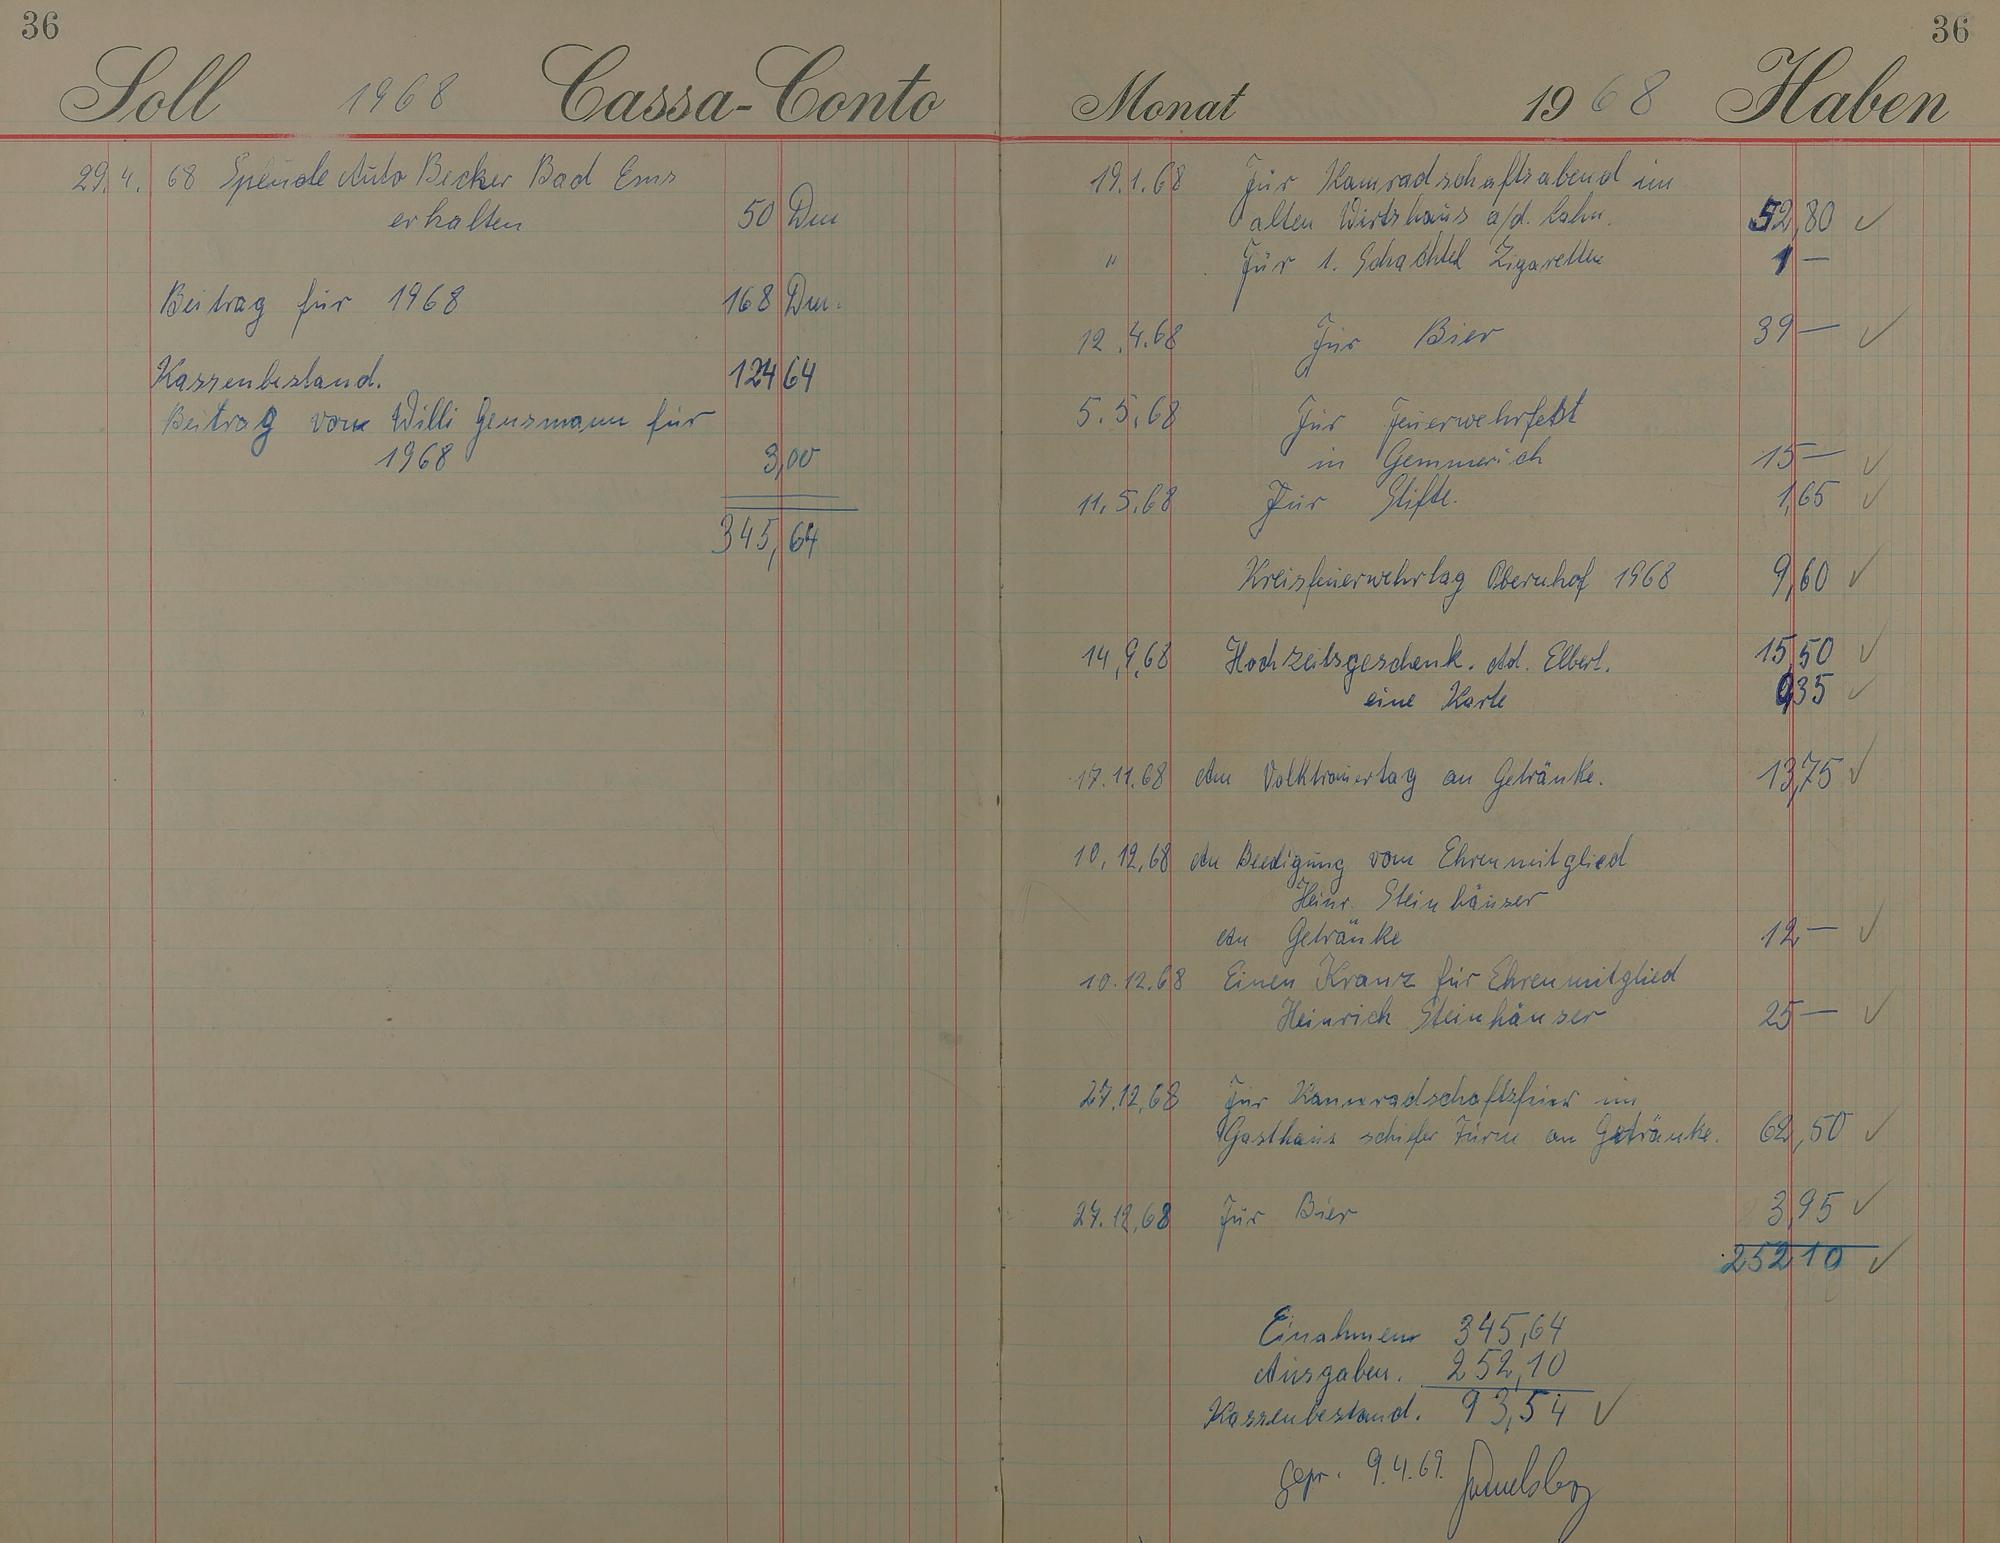 36
Soll 1968 Cassa-Conto
29. 4. 68 Spende Auto Becker Bad Ems
erhalten 50 Dm
Beitrag für 1968 168 Dm.
Kassenbestand. 124 64
Beitrag vom Willi Gensmann für
1968 3,00
345,64
36
Monat 1968 Haben
19.1.68 Für Kamradschaftsabend im
alten Wirtshaus a/d. Lahn. 52,80 ✓
" Für 1. Schachtel Zigaretten 1 —
12.4.68 Für Bier 39 — ✓
5.5.68 Für Feuerwehrfest
in Gemmerich 15 — ✓
11.5.68 Für Stifte. 1,65 ✓
Kreisfeuerwehrtag Obernhof 1968 9,60 ✓
14.9.68 Hochzeitsgeschenk. Ad. Elbert. 15,50 ✓
eine Karte 0,35 ✓
17.11.68 Am Volktrauertag an Getränke. 13,75 ✓
10.12.68 An Beedigung vom Ehrenmitglied
Heinr. Steinhäuser
An Getränke 12,— ✓
10.12.68 Einen Kranz für Ehrenmitglied
Heinrich Steinhäuser 25 — ✓
27.12.68 Für Kammradschaftsfeier im
Gasthaus schiefer Turm an Getränke. 62,50 ✓
27.12.68 Für Bier 3,95 ✓
252 10 ✓
Einahmen 345,64
Ausgaben. 252,10
Kassenbestand. 93,54 ✓
gepr. 9.4.69.